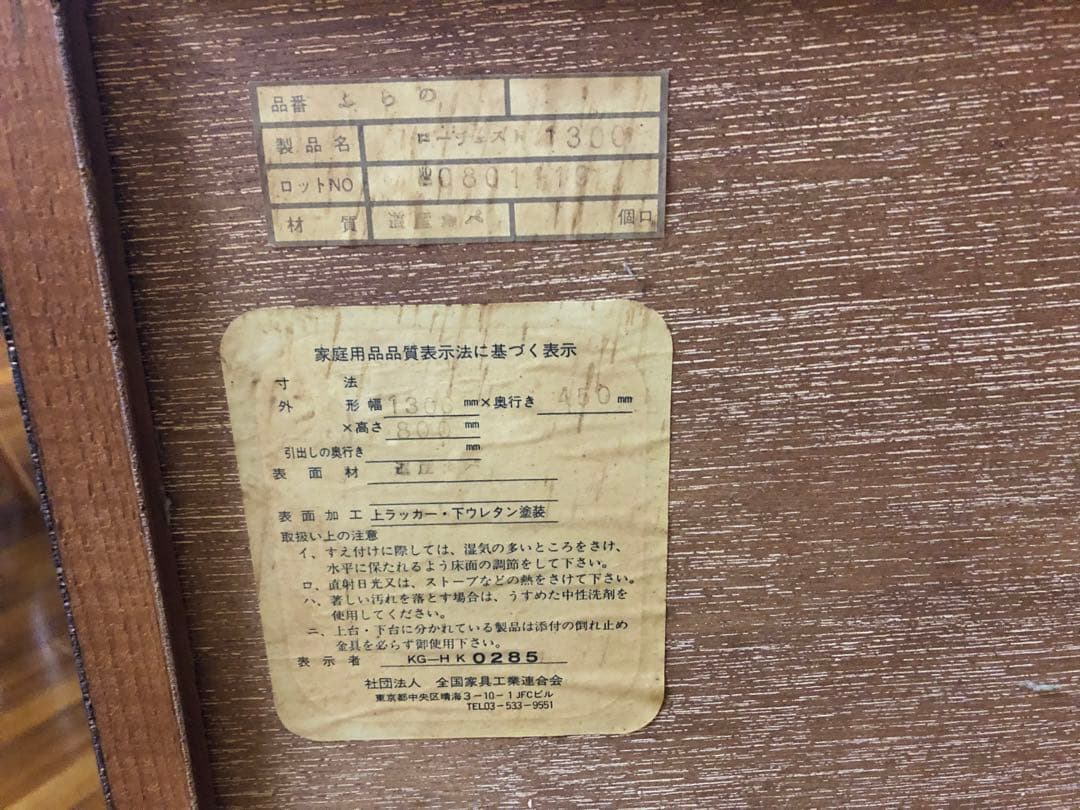 品番 ふらの
製品名 ローチェスト 1300
ロットNO 080111
材質 個口
家庭用品品質表示法に基づく表示
寸法
外形幅 1300 mm×奥行き 450 mm
×高さ 800 mm
引出しの奥行き mm
表面材
表面加工 上ラッカー・下ウレタン塗装
取扱い上の注意
イ、すえ付けに際しては、湿気の多いところをさけ、
水平に保たれるよう床面の調節をして下さい。
ロ、直射日光又は、ストーブなどの熱をさけて下さい。
ハ、著しい汚れを落とす場合は、うすめた中性洗剤を
使用してください。
ニ、上台・下台に分かれている製品は添付の倒れ止め
金具を必らず御使用下さい。
表示者 KG-HK 0285
社団法人 全国家具工業連合会
東京都中央区晴海3-10-1 JFCビル
TEL03-533-9551